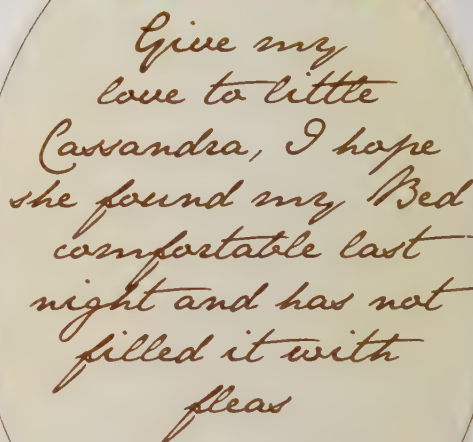 Give my
love to little
Cassandra, I hope
she found my Bed
comfortable last
night and has not
filled it with
fleas